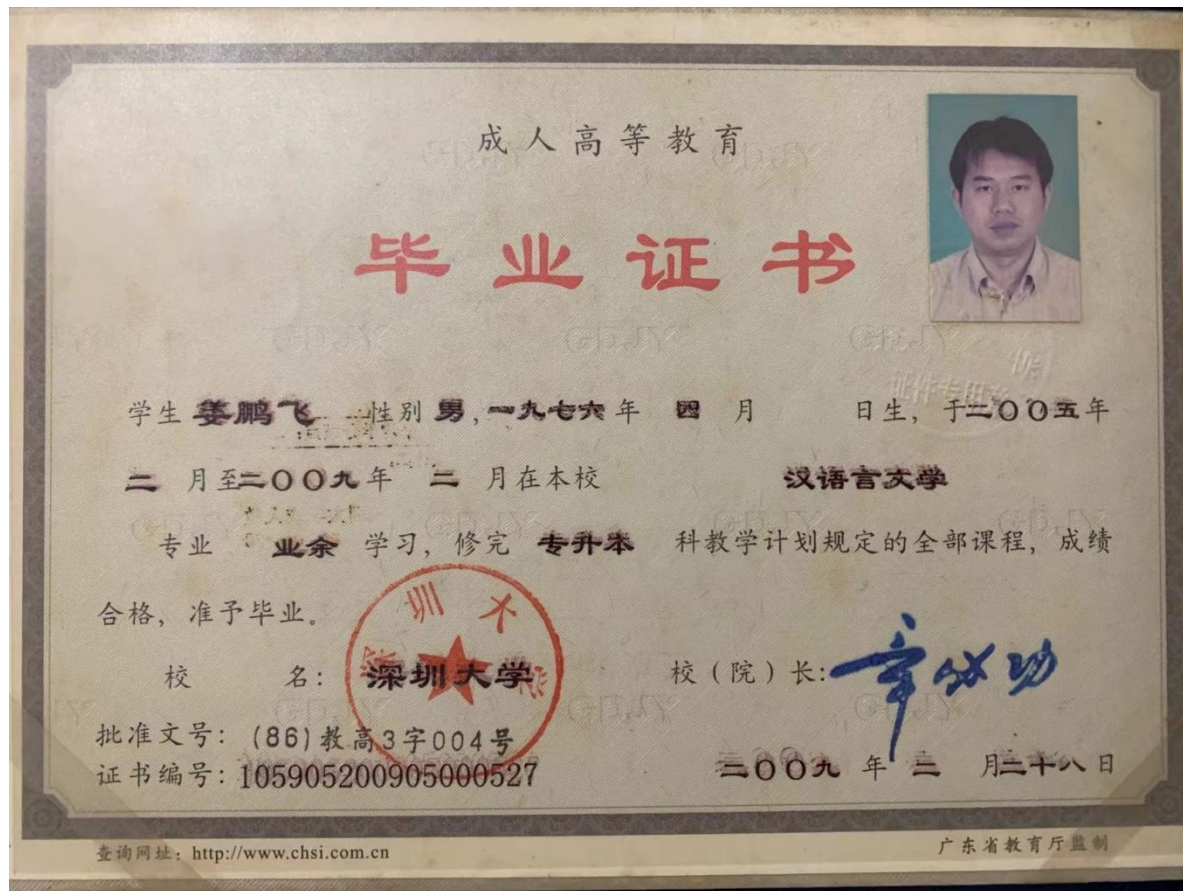 成人高等教育
毕业证书
学生 姜鹏飞 性别 男，一九七六年 四 月 日生，于二〇〇五年
二 月至二〇〇九年 二 月在本校 汉语言文学
专业 业余 学习，修完 专升本 科教学计划规定的全部课程，成绩
合格，准予毕业。
校 名：深圳大学 校（院）长：章必功
批准文号：(86)教高3字004号
证书编号：105905200905000527
二〇〇九 年 二 月二十八日
查询网址：http://www.chsi.com.cn 广东省教育厅监制
深圳大学
证件专用章